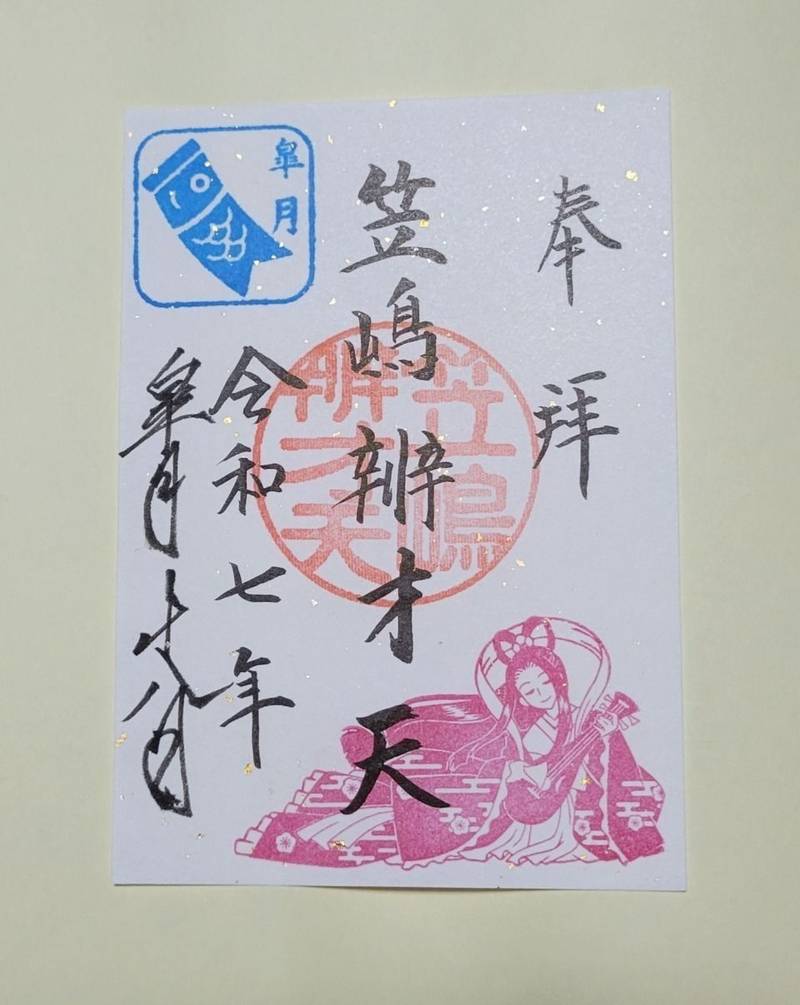 奉拝
笠嶋辨才天
笠嶋
辨才天
令和七年
皐月十八日
皐月